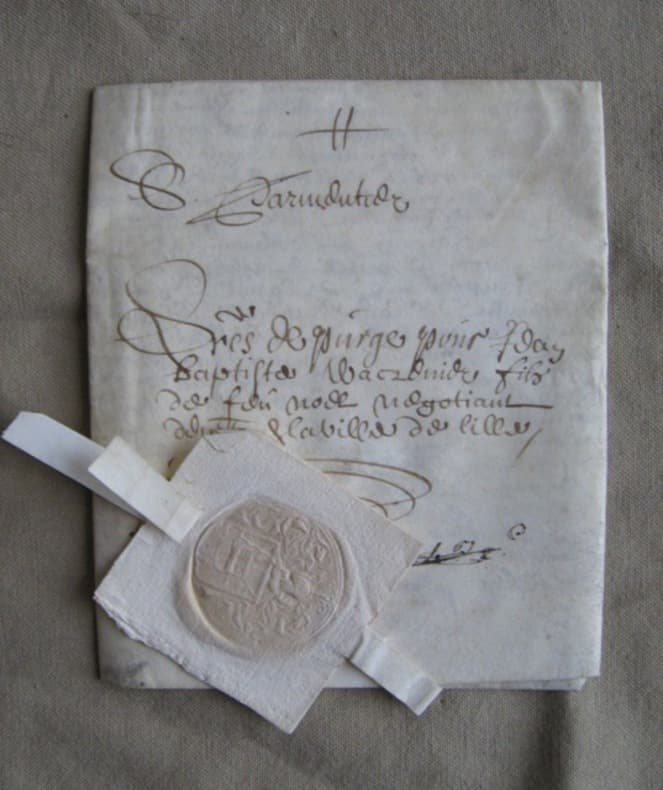 S. Parmentier
Lres de purge pour Jean
baptiste Wacrenier fils
de feu noel negotiant
de la ville de lille